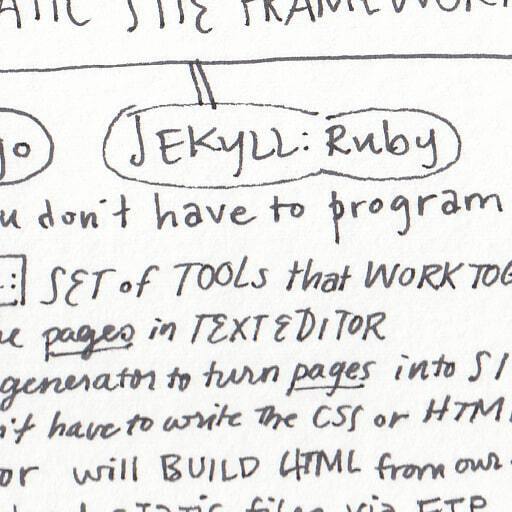 STATIC SITE FRAMEWOR
go JEKYLL: Ruby
u don't have to program
SET of TOOLS that WORK TOG
pages in TEXT EDITOR
generator to turn pages into SI
n't have to write the CSS or HTML
or will BUILD HTML from our
static files via FTP